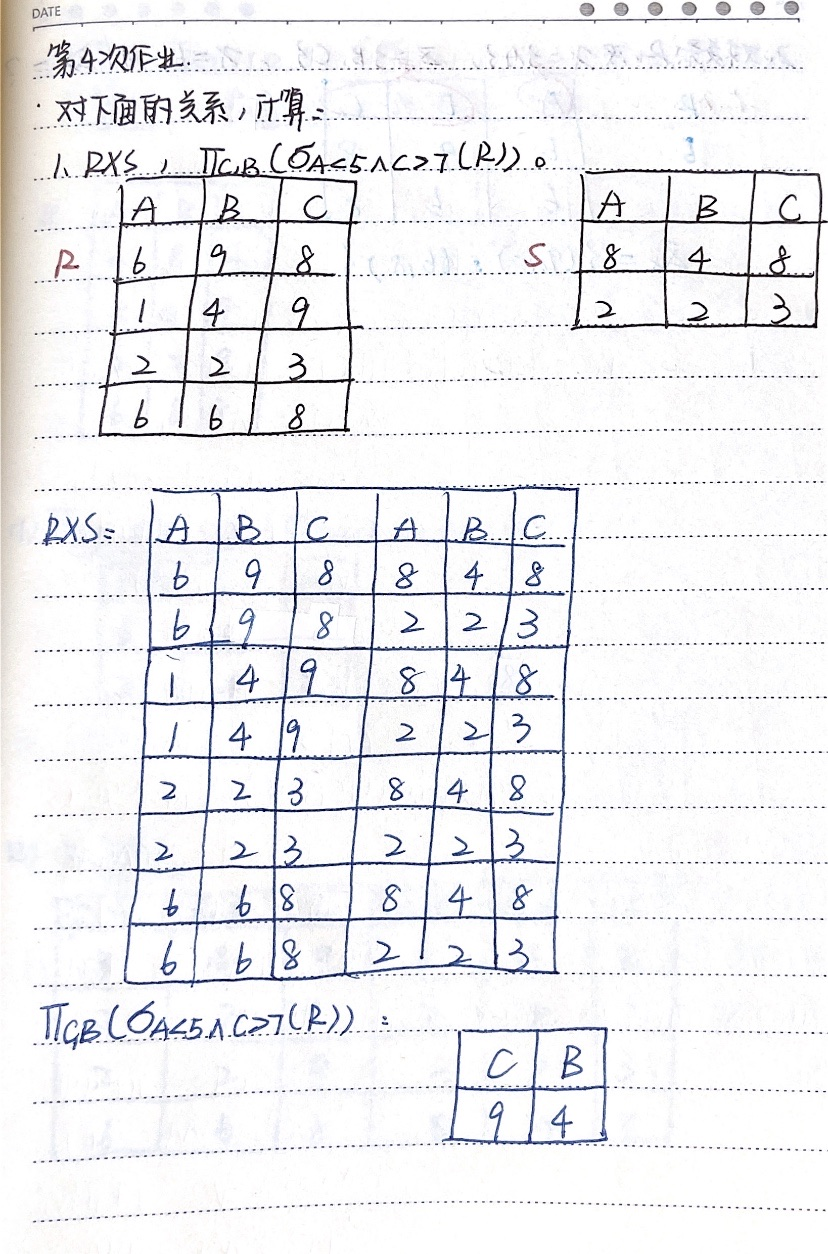 DATE
第4次作业.
·对下面的关系,计算:
1、R×S, ΠC,B(σA<5∧C>7(R))。
R
A B C
6 9 8
1 4 9
2 2 3
6 6 8
S
A B C
8 4 8
2 2 3
R×S=
A B C A B C
6 9 8 8 4 8
6 9 8 2 2 3
1 4 9 8 4 8
1 4 9 2 2 3
2 2 3 8 4 8
2 2 3 2 2 3
6 6 8 8 4 8
6 6 8 2 2 3
ΠC,B(σA<5∧C>7(R)):
C B
9 4